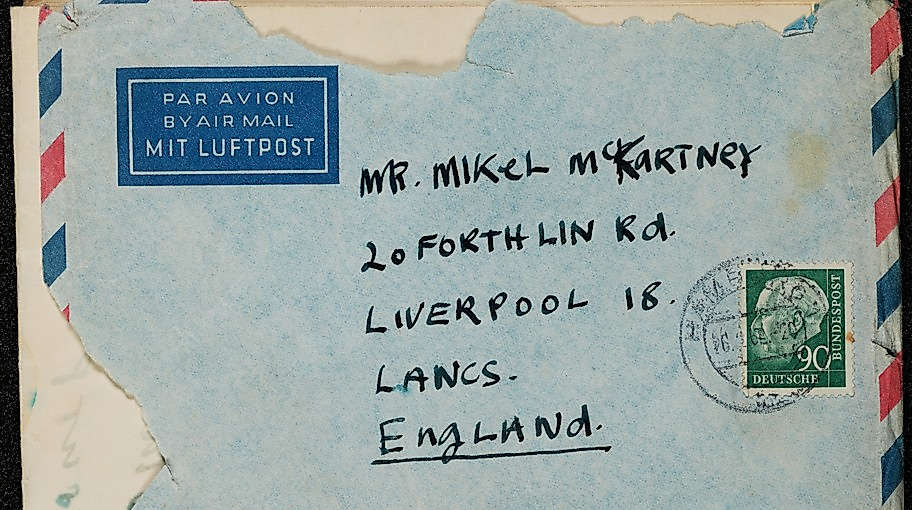 PAR AVION
BY AIR MAIL
MIT LUFTPOST
MR. MIKEL McKARTNEY
20 FORTHLIN Rd.
LIVERPOOL 18.
LANCS.
EngLAND.
90
DEUTSCHE
BUNDESPOST